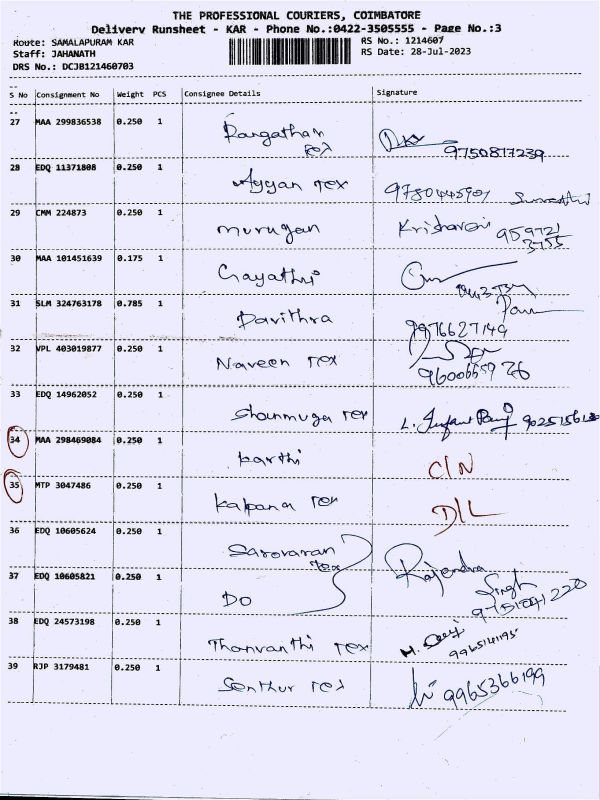 THE PROFESSIONAL COURIERS, COIMBATORE
Delivery Runsheet - KAR - Phone No.:0422-3505555 - Page No.:3
Route: SAMALAPURAM KAR
RS No.: 1214607
Staff: JAHANATH
RS Date: 28-Jul-2023
DRS No.: DCJB121460703
S No Consignment No Weight PCS Consignee Details Signature
27 MAA 299836538 0.250 1 Rangathan
tex 9750817239
28 EDQ 11371808 0.250 1 Ayyan Tex
29 CMM 224873 0.250 1 murugan 959721
3755
30 MAA 101451639 0.175 1 Gayathri
31 SLM 324763178 0.785 1 Pavithra
9976627149
32 VPL 403019877 0.250 1 Naveen Tex
33 EDQ 14962052 0.250 1 Shanmuga Tex
34 MAA 298469084 0.250 1 Karthi C/N
35 MTP 3047486 0.250 1 Kalpana Tex D/L
36 EDQ 10605624 0.250 1 Sarovaran
Tex Rajendra
Singh
37 EDQ 10605821 0.250 1 DO
38 EDQ 24573198 0.250 1 Thanvanthi Tex
39 RJP 3179481 0.250 1 Senthur Tex 9965366199